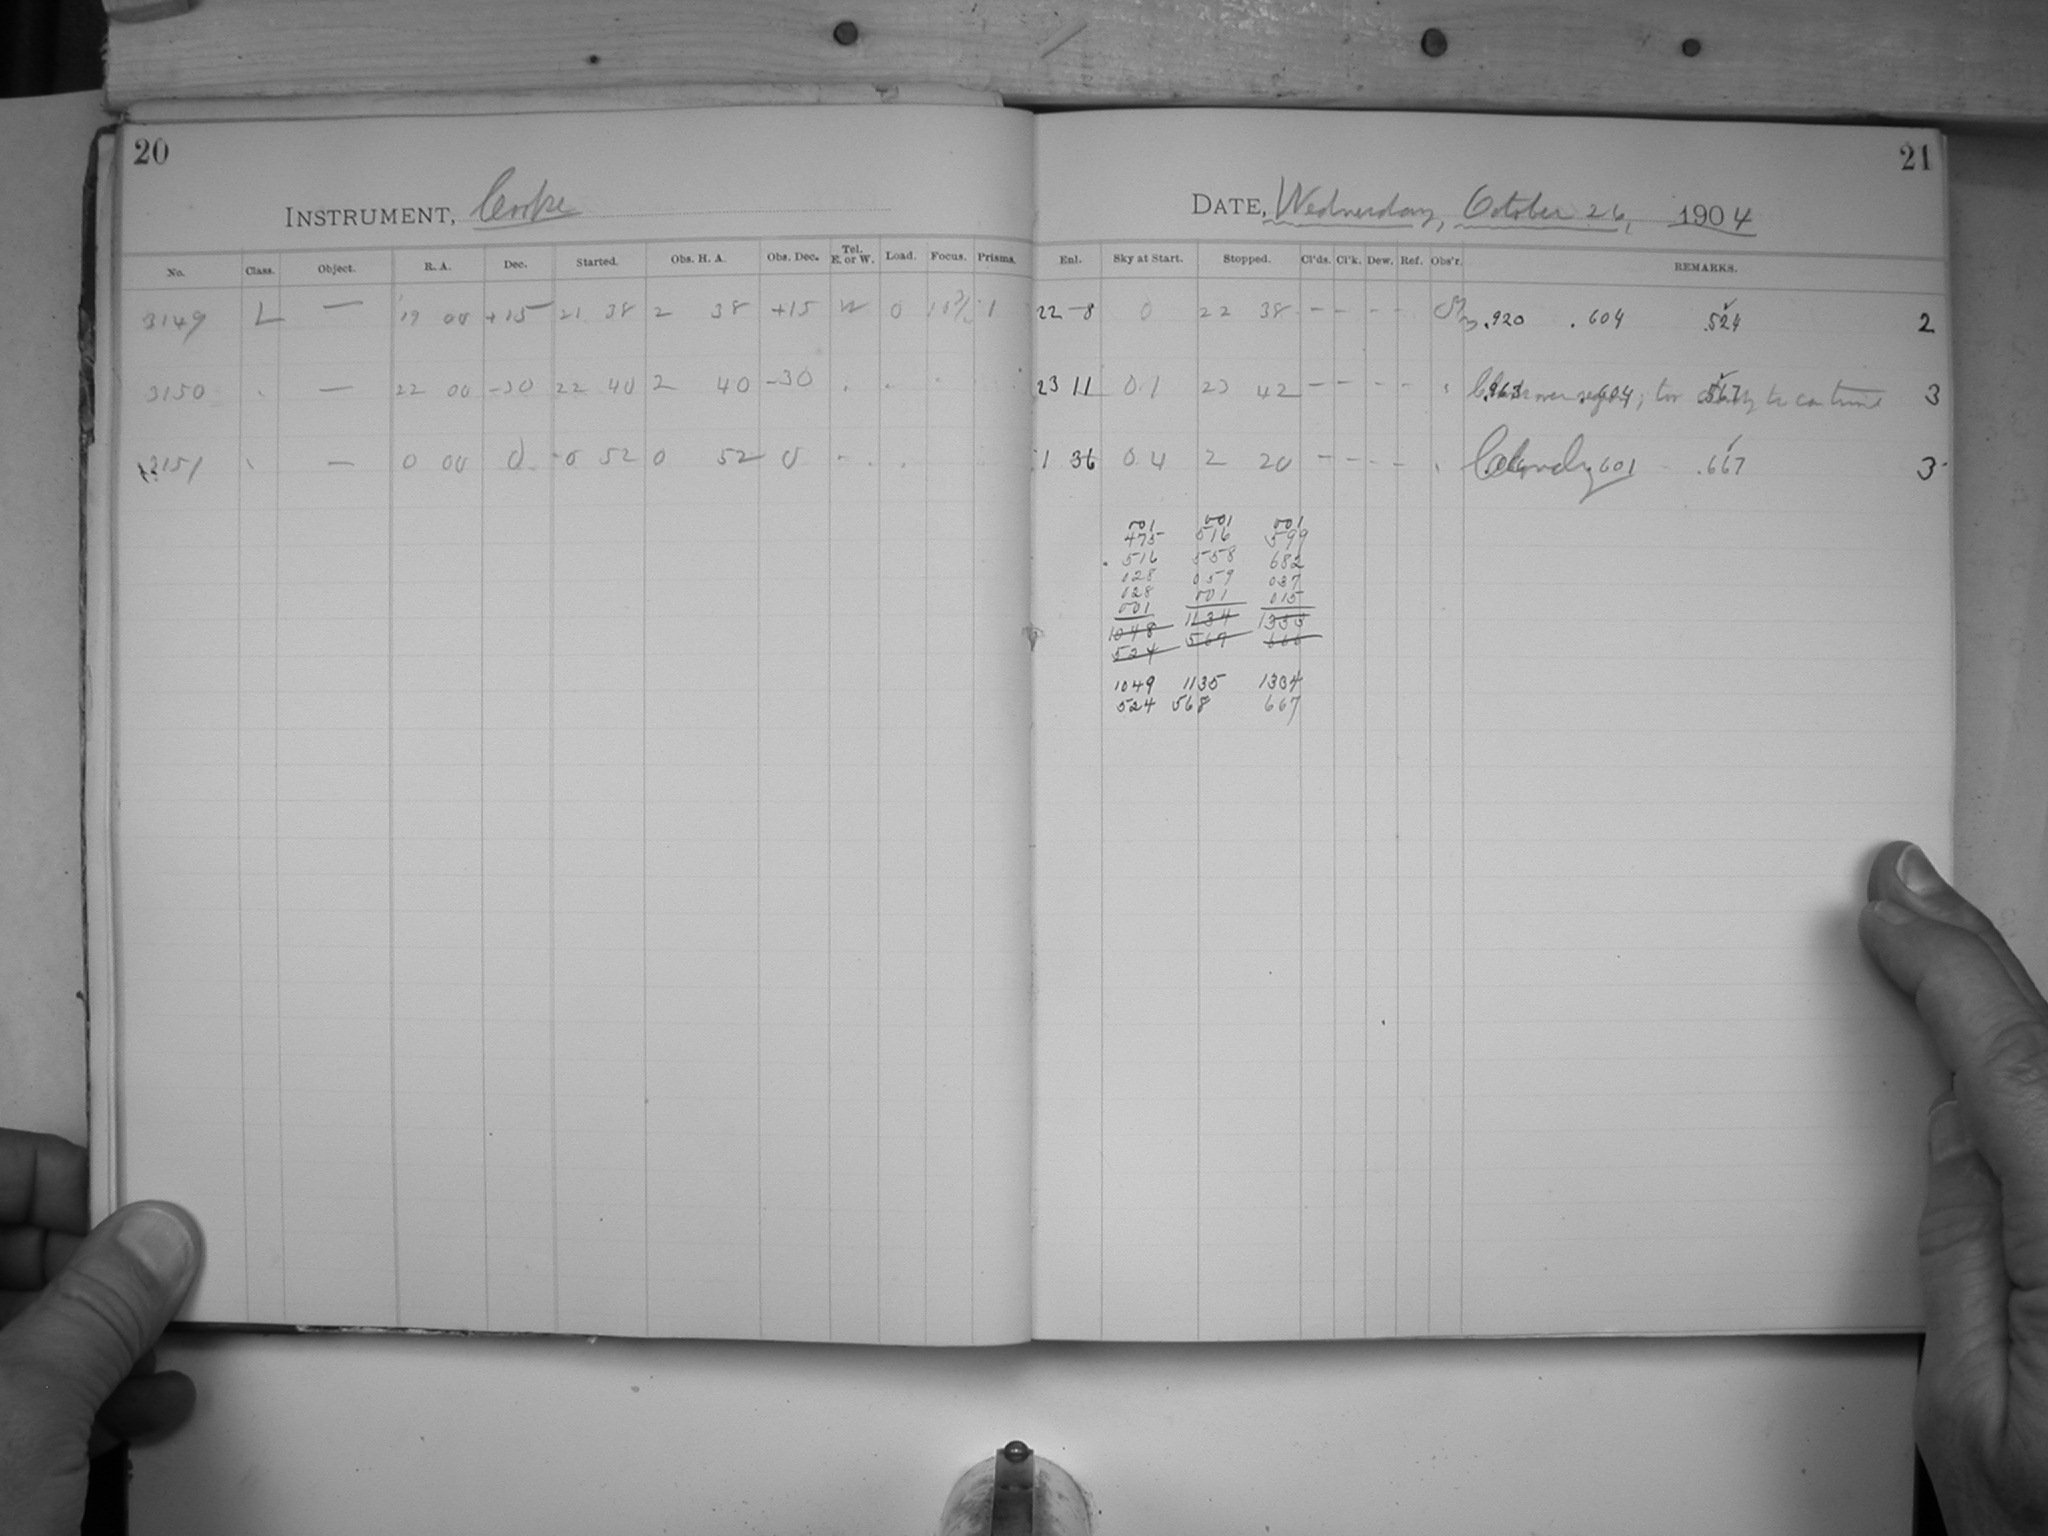 20
INSTRUMENT, Cooke
No. Class. Object. R. A. Dec. Started. Obs. H. A. Obs. Dec. Tel. E. or W. Load. Focus. Prisms.
3149 L — 19 00 +15 21 38 2 38 +15 W 0 1
3150 — 22 00 -30 22 40 2 40 -30
3151 — 0 00 0 0 52 0 52 0
21
DATE, Wednesday, October 26, 1904
Enl. Sky at Start. Stopped. Cl'ds. Cl'k. Dew. Ref. Obs'r. REMARKS.
22 8 0 22 38 — — - - .920 .604 .524 2
23 11 0.1 23 42 — — - - .963 .604 .567 ; too cloudy to continue 3
1 36 0.4 2 20 — — - - Cloudy .601 .667 3
001 001 001
475 516 599
516 558 682
028 059 037
028 001 015
001 1134 1333
1048 567 666
524
1049 1135 1334
524 568 667